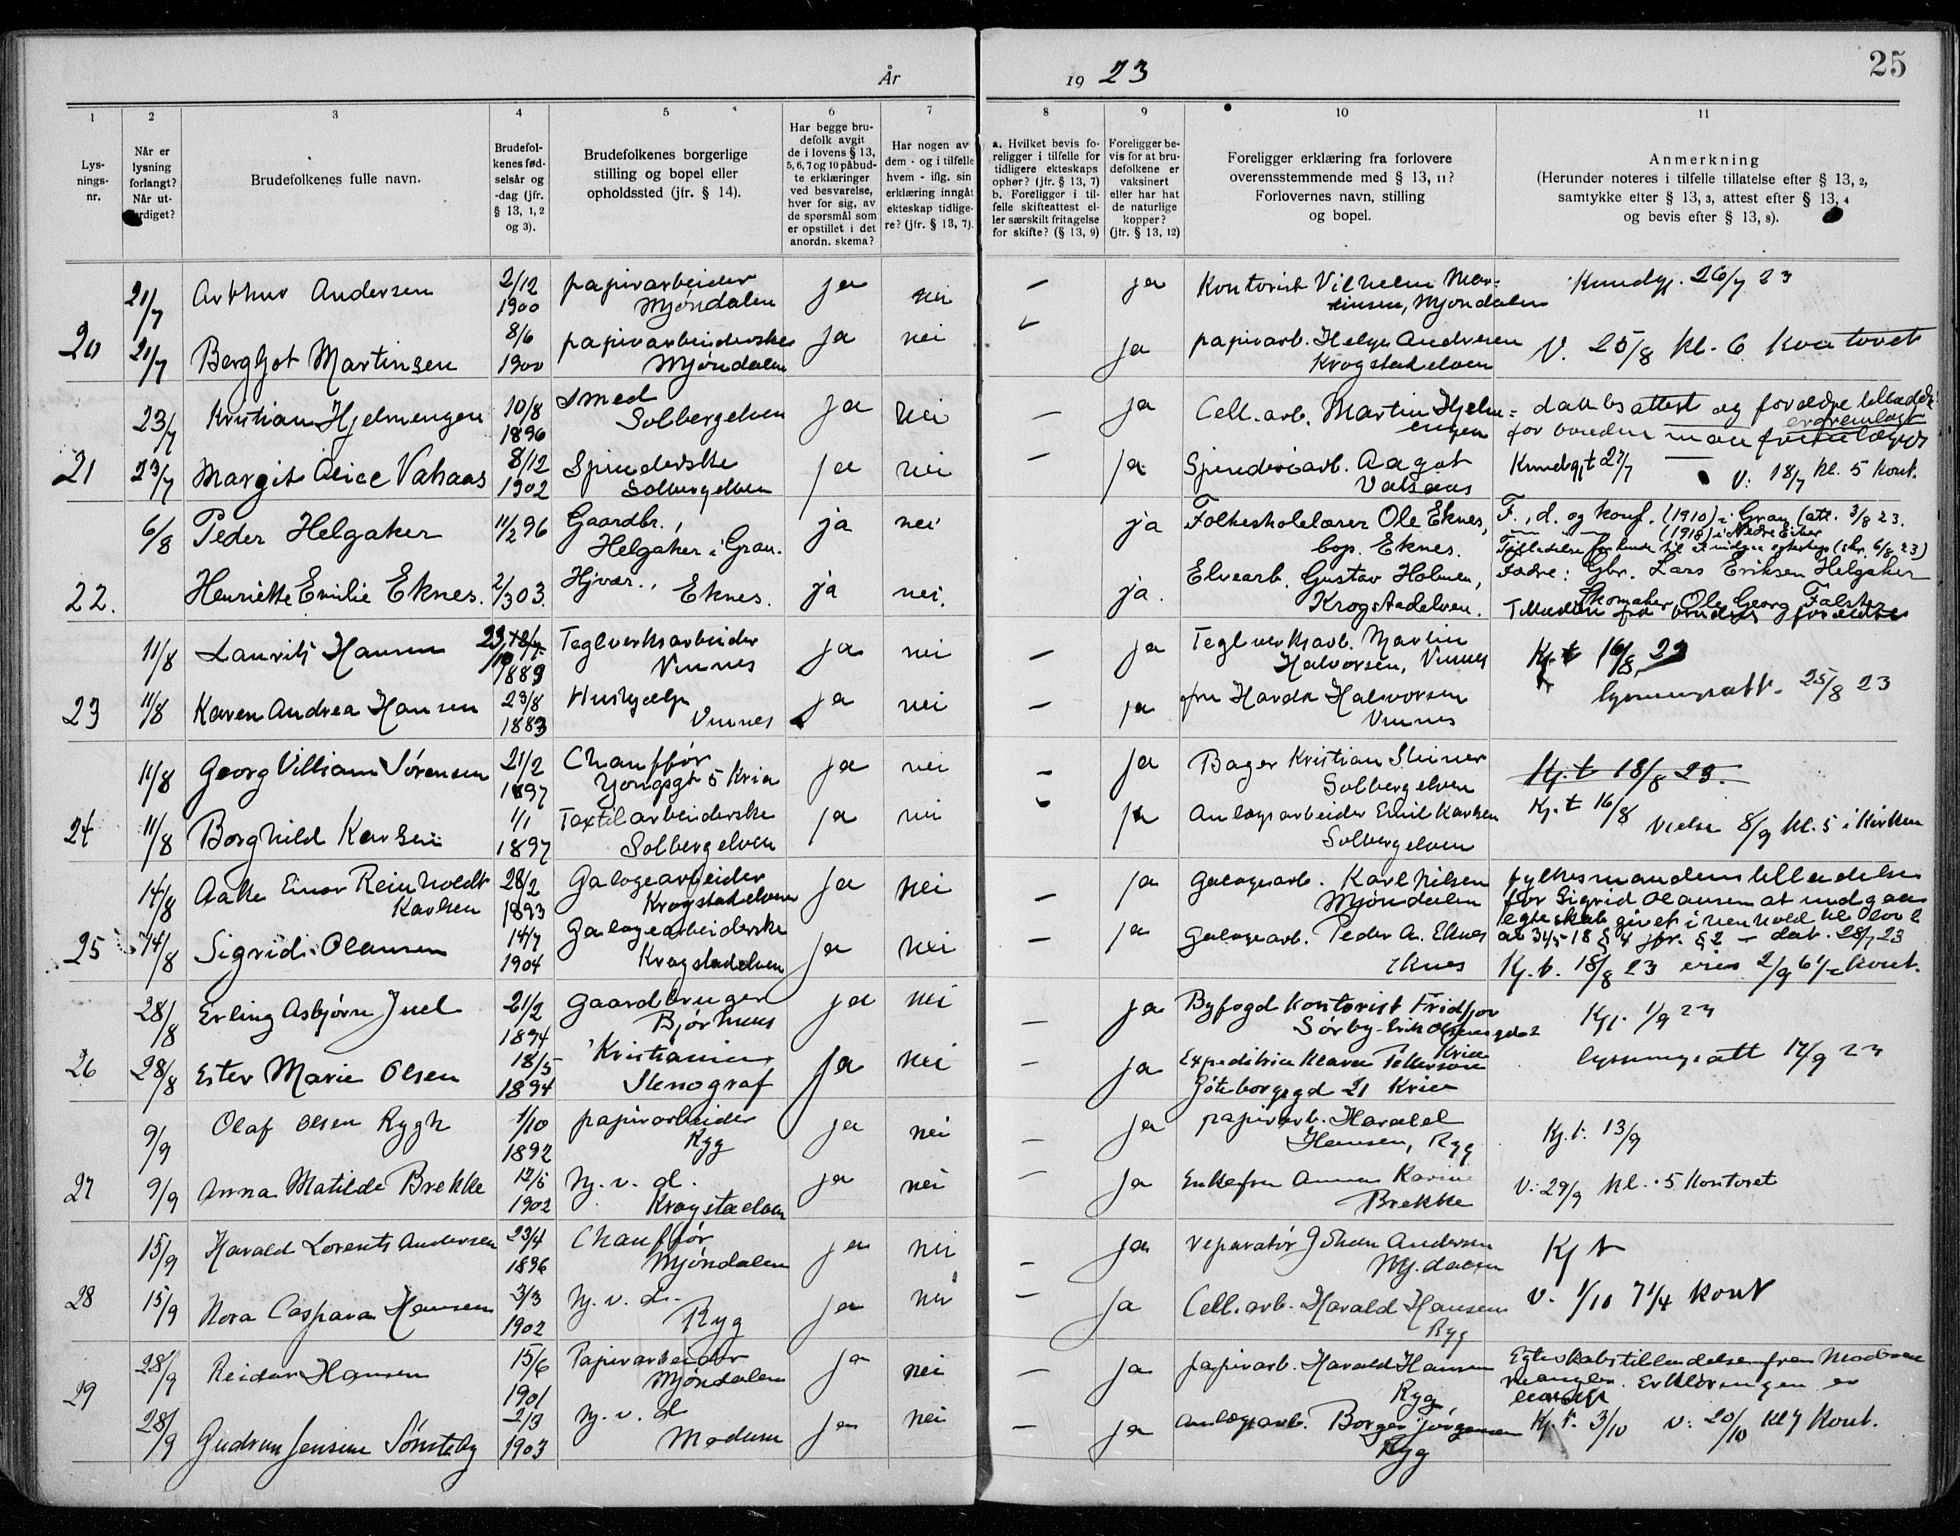 År
19 23
25
1
2
3
4
5
6
7
8
9
10
11
Lys-
nings-
nr.
Når er
lysning
forlangt?
Når ut-
færdiget?
Brudefolkenes fulle navn.
Brudefol-
kenes fød-
selsår og
-dag (jfr.
§ 13, 1, 2
og 3).
Brudefolkenes borgerlige
stilling og bopel eller
opholdssted (jfr. § 14).
Har begge bru-
defolk avgit
de i lovens § 13,
5, 6, 7 og 10 påbud-
te erklæringer
ved besvarelse,
hver for sig, av
de spørsmål som
er opstillet i det
anordn. skema?
Har nogen av
dem - og i tilfelle
hvem - iflg. sin
erklæring inngåt
ekteskap tidlige-
re? (jfr. § 13, 7).
a. Hvilket bevis fo-
religger i tilfelle for
tidligere ekteskaps
ophør? (jfr. § 13, 7)
b. Foreligger i til-
felle skifteattest el-
ler særskilt fritagelse
for skifte? (§ 13, 9)
Foreligger be-
vis for at bru-
defolkene er
vaksinert
eller har hat
de naturlige
kopper?
(jfr. § 13, 12)
Foreligger erklæring fra forlovere
overensstemmende med § 13, 11?
Forlovernes navn, stilling
og bopel.
Anmerkning
(Herunder noteres i tilfelle tillatelse efter § 13, 2,
samtykke efter § 13, 3, attest efter § 13, 4
og bevis efter § 13, 8).
21/7 Arthur Andersen 2/12 1900 papirarbeider Mjøndalen ja nei — ja Kontorist Vilhelm Mar-
tinsen, Mjøndalen Kundgj. 26/7 23
20 21/7 Bergljot Martinsen 8/6 1900 papirarbeiderske Mjøndalen ja nei ja papirarb. Helge Andersen
Krogstadelven V. 25/8 kl. 6 Kontoret
23/7 Kristian Hjelmengen 10/8 1896 Smed Solbergelven ja nei — ja Cell. arb. Martin Hjelm-
engen daabsattest og forældre tilladelse
for bruden
21 23/7 Margit Alice Vahaas 8/12 1902 Spinderske Solbergelven ja nei — ja Spinderiarb. Aagot
Valsaas Kundgjt 27/7 V: 18/7 kl. 5 Kont.
6/8 Peder Helgaker 11/2 96 Gaardbr., Helgaker i Gran. ja nei ja Folkeskolelærer Ole Eknes,
bop. Eknes. F., d. og konf. (1910) i Gran (att. 3/8 23.
(1918) i Nedre Eiker
22. Henriette Emilie Eknes. 2/3 03. Hjvær., Eknes. ja nei. ja. Elvearb. Gustav Holmen,
Krogstadelven. Fædre: Gbr. Lars Eriksen Helgaker
Skomaker Ole Georg Falster
11/8 Laurits Hansen 23/10 1889 Teglverksarbeider Vinnes ja nei — ja Teglverksarb. Martin
Halvorsen, Vinnes Kj. t 16/8 23
23 11/8 Karen Andrea Hansen 23/8 1883 Hushjælp Vinnes ja nei — ja fru Halvorsen
Vinnes lysningsatt. 25/8 23
11/8 Georg Villiam Sørensen 21/2 1897 Chauffør Yongsgt 5 Kria ja nei — ja Bager Kristian Steiner
Solbergelven Kj. t 18/8 23.
24 11/8 Borghild Karlsen 1/1 1897 Textilarbeiderske Solbergelven ja nei ja Anlægsarbeider Emil Karlsen
Solbergelven Kj. t 16/8 Vielse 8/9 kl. 5 i Kirken
14/8 Aake Einar Reinholdt
Karlsen 28/2 1893 Galogearbeider Krogstadelven ja nei — ja Galogearb. Karl Nilsen
Mjøndalen fylkesmandens tilladelse
for Sigrid Olausen at indgaa
egteskab givet i henhold til lov
25 14/8 Sigrid Olausen 14/7 1904 Galogearbeiderske Krogstadelven ja nei — ja Galogearb. Peder A. Eknes
Eknes av 31/5-18 § 4 jfr. § 2 — dat. 28/7 23
Kj. t. 18/8 23 2/9 Kont.
28/8 Erling Asbjørn Juel 21/2 1894 Gaardbruger Bjørhaus ja nei — ja Byfogd kontorist Fridtjov
Sørby Kj. 1/9 23
26 28/8 Ester Marie Olsen 18/5 1894 Kristiania Stenograf ja nei — ja Expeditrice Klara Pettersen Kria
Göteborggd 21 Kria lysningsatt 17/9 23
9/9 Olaf Olsen Rygh 1/10 1892 papirarbeider Ryg ja nei — ja papirarb. Harald
Hansen, Ryg Kj. t. 13/9
27 9/9 Anna Matilde Brekke 12/5 1902 Hj. v. d. Krogstadelven ja nei — ja Enkefru Anna Karine
Brekke V: 29/9 kl. 5 Kontoret
15/9 Harald Lorents Andersen 23/4 1896 Chauffør Mjøndalen ja nei — ja reparatør Johan Andersen
Mj. dalen Kj t
28 15/9 Nora Caspara Hansen 3/3 1902 Hj. v. d. Ryg ja nei — ja Cell. arb. Harald Hansen
Ryg V. 1/10 7 1/4 Kont
28/9 Reidar Hansen 15/6 1901 Papirarbeider Mjøndalen ja nei — ja papirarb. Harald Hansen
Ryg Egteskabstilladelsen fra Modum
mangler. Erklæringen er
29 28/9 Gudrun Jensine Sønsteby 2/3 1903 Hj. v. d. Modum ja nei — ja anlægsarb. Borger Jørgensen
Ryg Kj. t. 3/10 V: 20/10 kl 7 Kont.